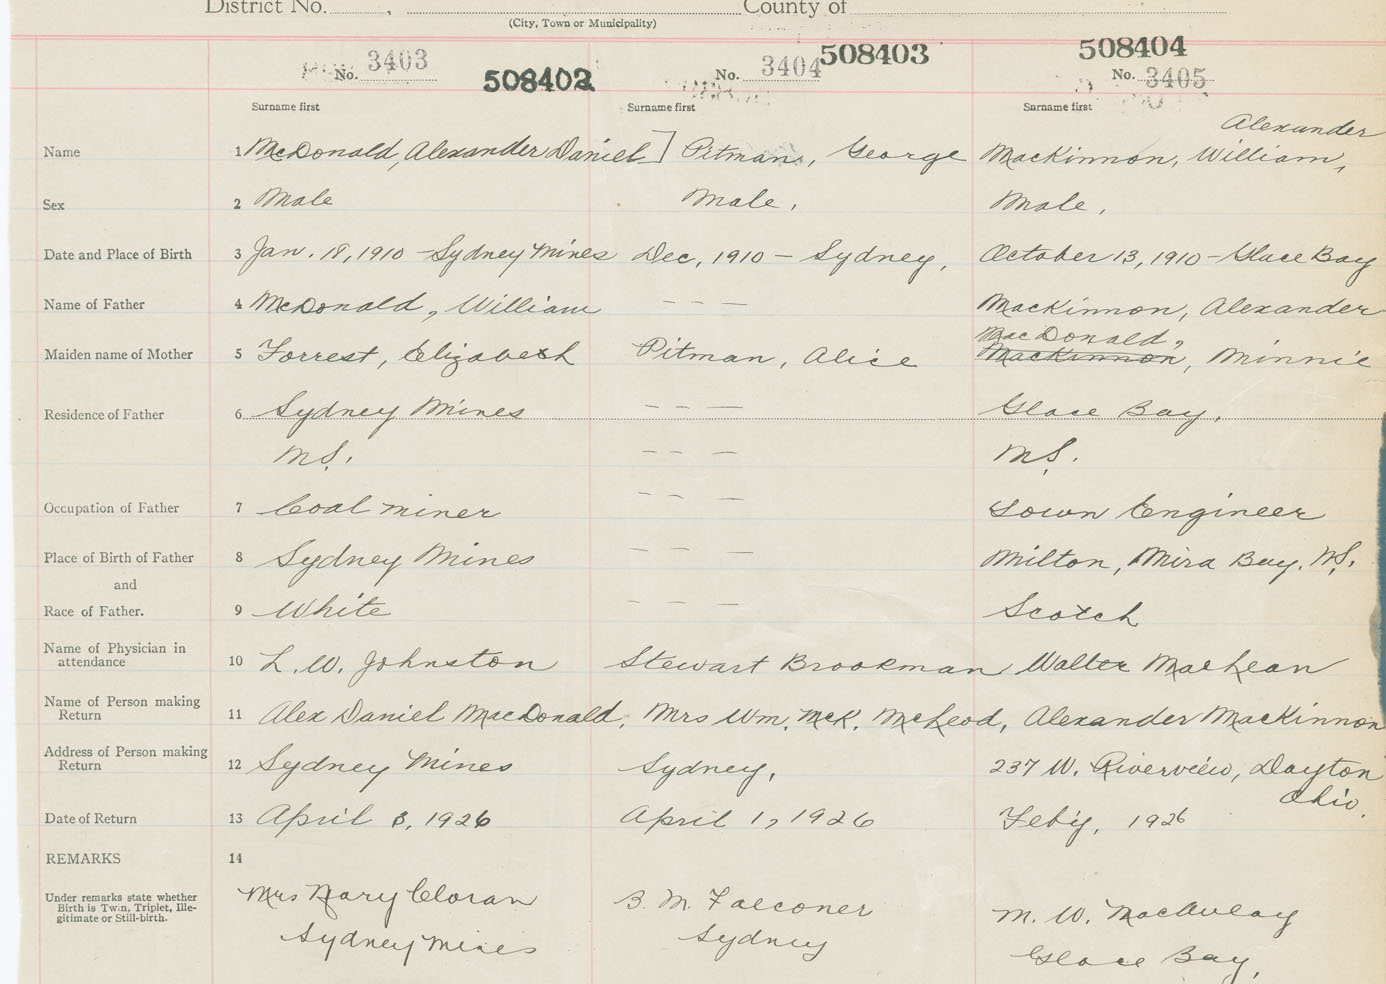 District No. , County of
(City, Town or Municipality)
No. 3403 508402 No. 3404 508403 508404 No. 3405
Surname first Surname first Surname first
Alexander
Name 1 McDonald, Alexander Daniel] Pitman, George MacKinnon, William,
Sex 2 Male Male, Male,
Date and Place of Birth 3 Jan. 18, 1910 - Sydney Mines Dec, 1910 - Sydney, October 13, 1910 - Glace Bay
Name of Father 4 McDonald, William - - - MacKinnon, Alexander
MacDonald,
Maiden name of Mother 5 Forrest, Elizabeth Pitman, Alice MacKinnon, Minnie
Residence of Father 6 Sydney Mines - - - Glace Bay,
N.S. - - - N.S.
Occupation of Father 7 Coal miner - - - Town Engineer
Place of Birth of Father 8 Sydney Mines - - - Milton, Mira Bay, N.S.
and
Race of Father. 9 White - - - Scotch
Name of Physician in
attendance 10 L. W. Johnston Stewart Brookman Walter MacLean
Name of Person making
Return 11 Alex Daniel MacDonald, Mrs Wm. McK. McLeod, Alexander MacKinnon
Address of Person making
Return 12 Sydney Mines Sydney, 237 W. Riverview, Dayton
Ohio.
Date of Return 13 April 3, 1926 April 1, 1926 Feb'y, 1926
REMARKS 14
Under remarks state whether
Birth is Twin, Triplet, Ille-
gitimate or Still-birth.
Mrs Mary Cloran B. M. Falconer M. W. MacAulay
Sydney Mines Sydney Glace Bay,